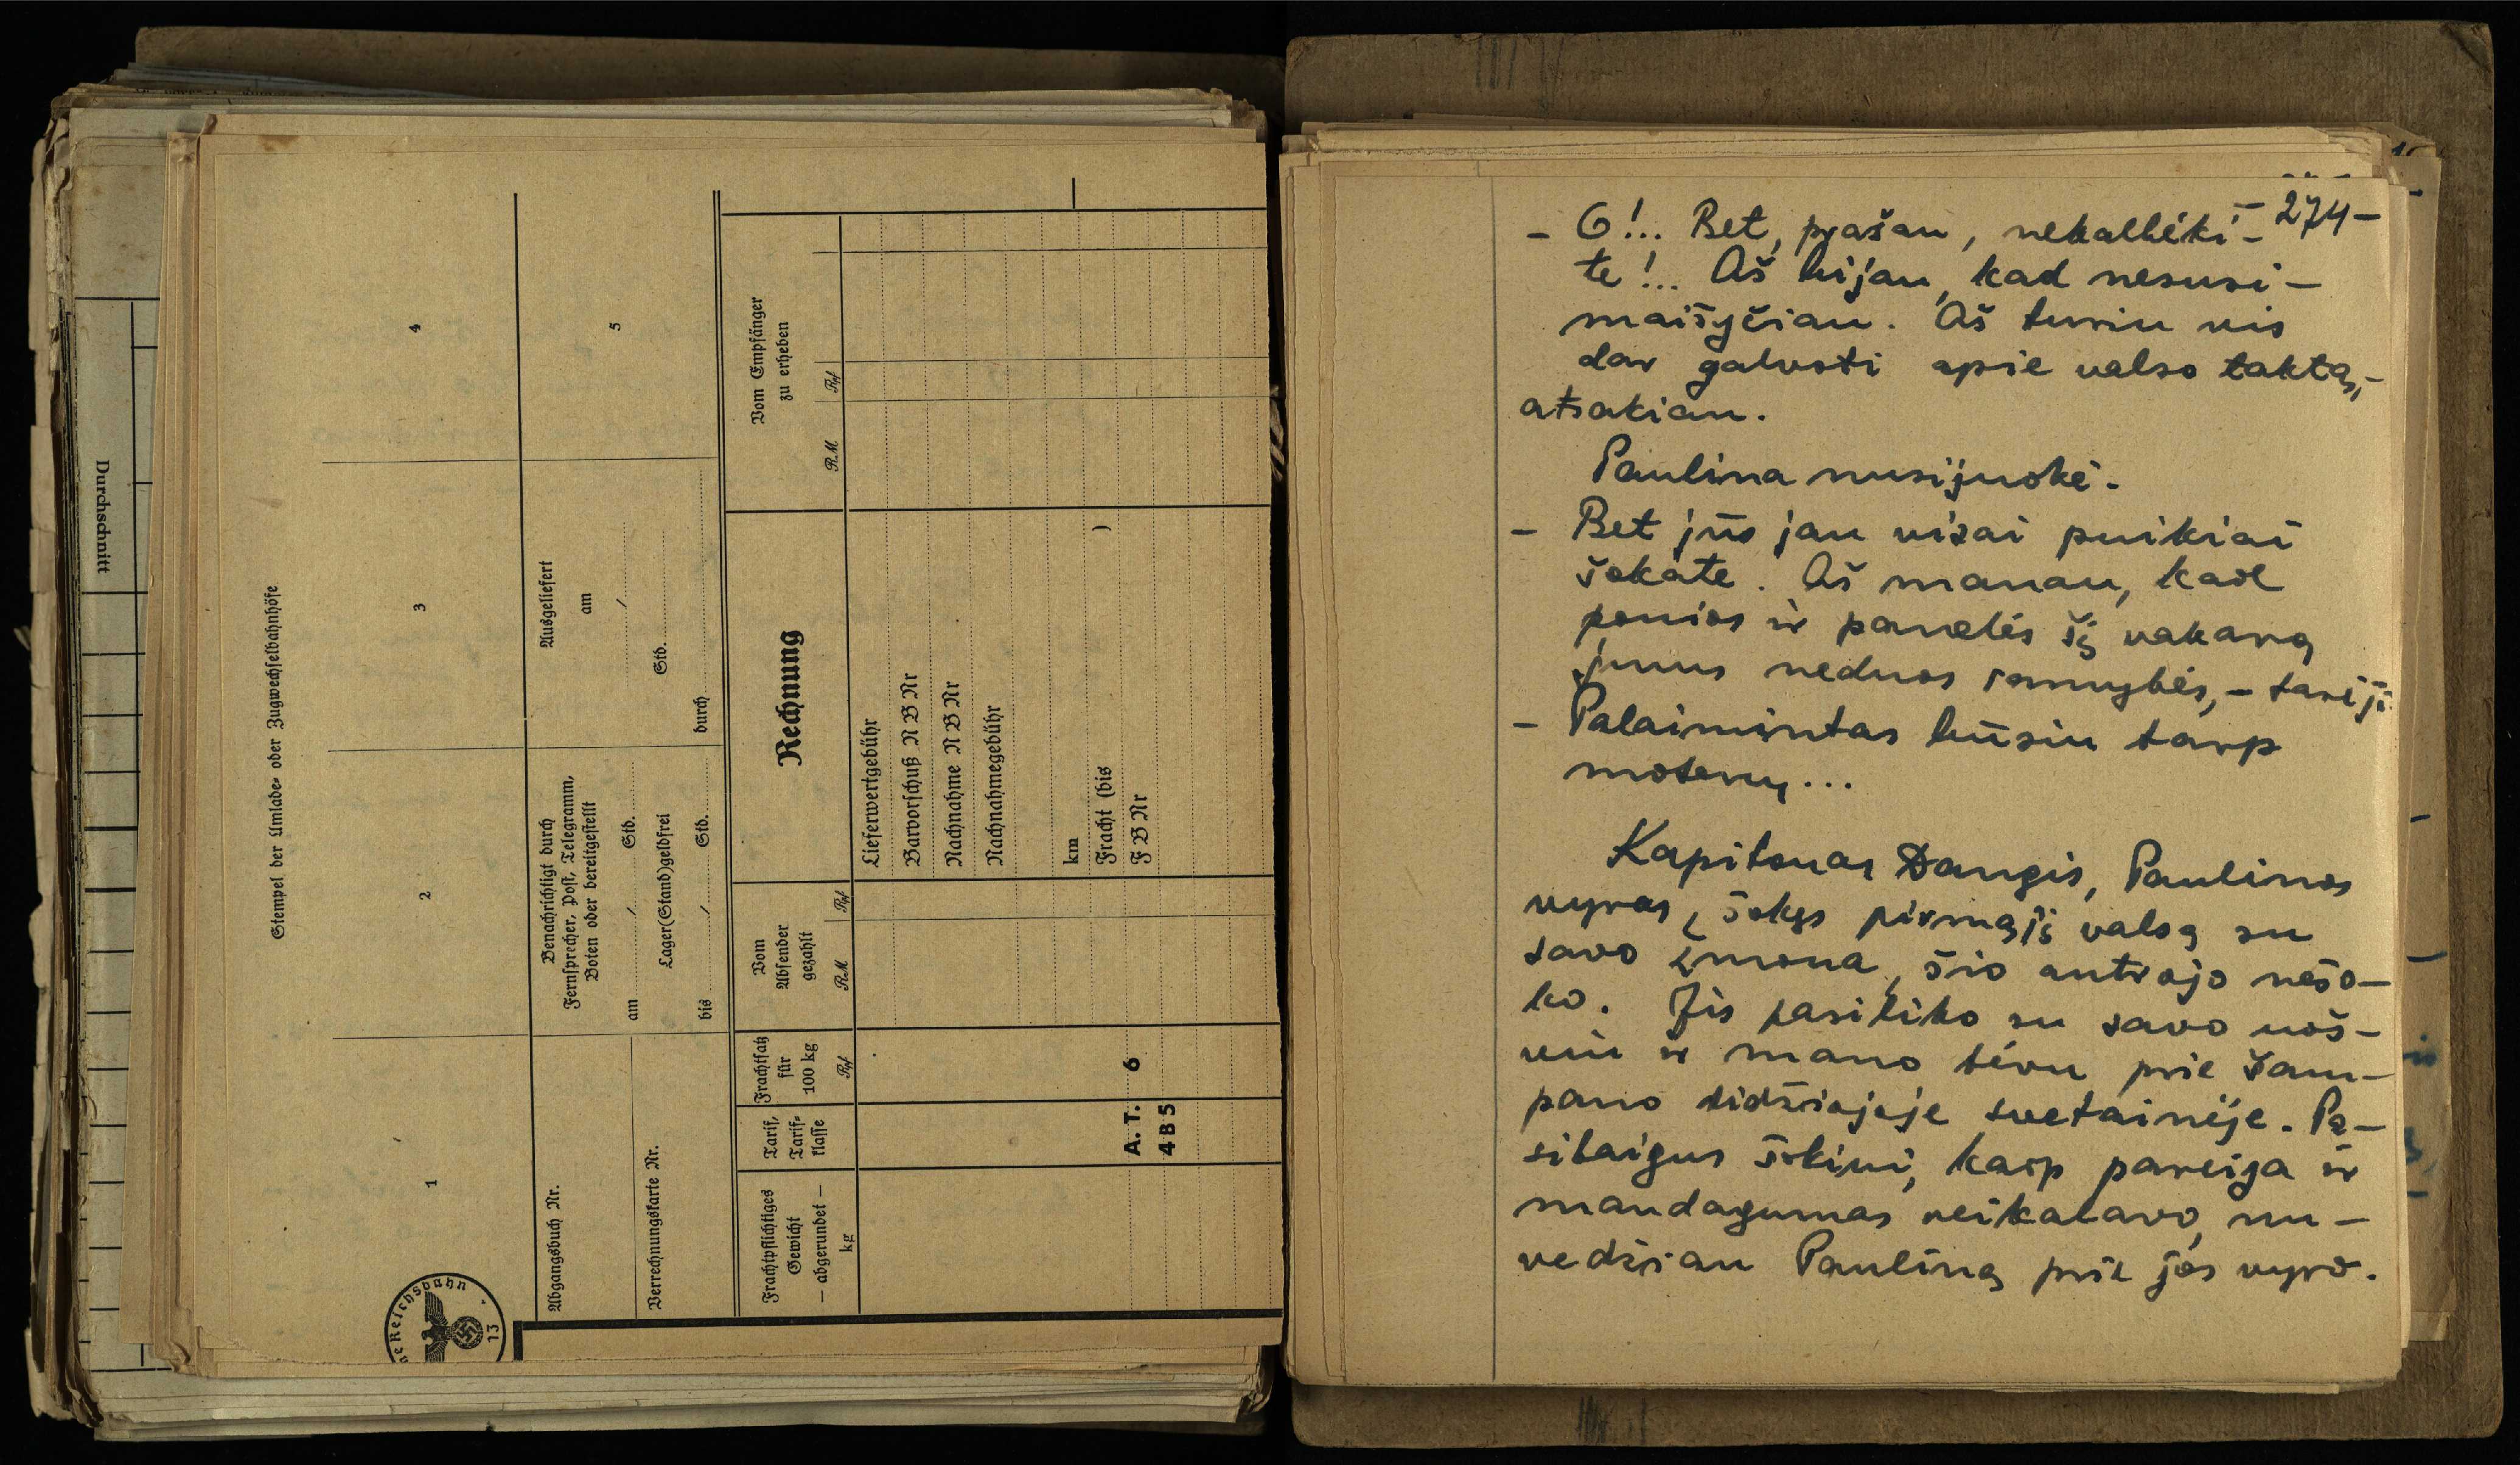 Durchschnitt
Stempel der Umlade- oder Zugwechselbahnhöfe
1
2
3
4
Abgangsbuch Nr.
Verrechnungskarte Nr.
Benachrichtigt durch
Fernsprecher, Post, Telegramm,
Boten oder bereitgestellt
am / Std.
Lager(Stand)geldfrei
bis / Std.
Ausgeliefert
am
/
Std.
durch
5
Frachtpflichtiges
Gewicht
— abgerundet —
kg
Tarif,
Tarif-
klasse
Frachtsatz
für
100 kg
Rpf
Vom
Absender
gezahlt
RM Rpf
Rechnung
Vom Empfänger
zu erheben
RM Rpf
Lieferwertgebühr
Barvorschuß N B Nr
Nachnahme N B Nr
Nachnahmegebühr
km
Fracht (bis )
F B Nr
A. T. 6
4 B 5
Reichsbahn
13
- 274 -
- O!.. Bet, prašau, nekalbėki-
te!.. Aš bijau, kad nesusi-
maišyčiau. Aš turiu vis
dar galvoti apie valso taktą,-
atsakiau.
Paulina nusijuokė.
- Bet jūs jau visai puikiai
šokate. Aš manau, kad
ponios ir panelės šį vakarą
jums neduos ramybės, - tarė ji.
- Palaimintas būsiu tarp
moterų...
Kapitonas Dangis, Paulinos
vyras, šokęs pirmąjį valsą su
savo žmona, šio antrojo nešo-
ko. Jis pasiliko su savo uoš-
viu ir mano tėvu prie šam-
pano didžiojoje svetainėje. Pa-
sibaigus šokiui, kaip pareiga ir
mandagumas reikalavo, nu-
vedžiau Pauliną prie jos vyro.